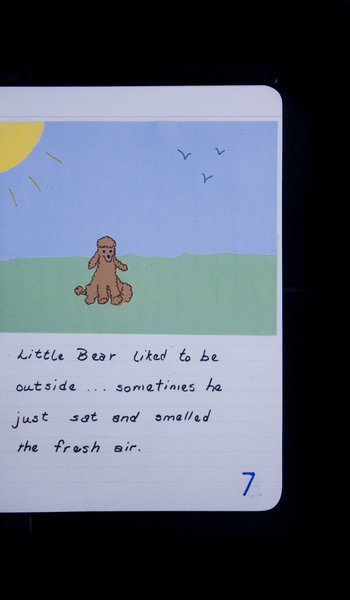 Little Bear liked to be
outside ... sometimes he
just sat and smelled
the fresh air.
7